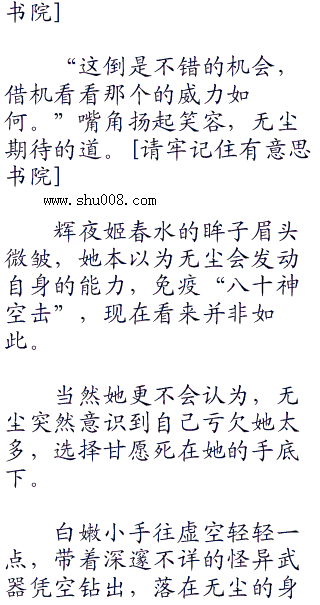 书院]
“这倒是不错的机会，
借机看看那个的威力如
何。”嘴角扬起笑容，无尘
期待的道。[请牢记住有意思
书院]
www.shu008.com
辉夜姬春水的眸子眉头
微皱，她本以为无尘会发动
自身的能力，免疫“八十神
空击”，现在看来并非如
此。
当然她更不会认为，无
尘突然意识到自己亏欠她太
多，选择甘愿死在她的手底
下。
白嫩小手往虚空轻轻一
点，带着深邃不详的怪异武
器凭空钻出，落在无尘的身